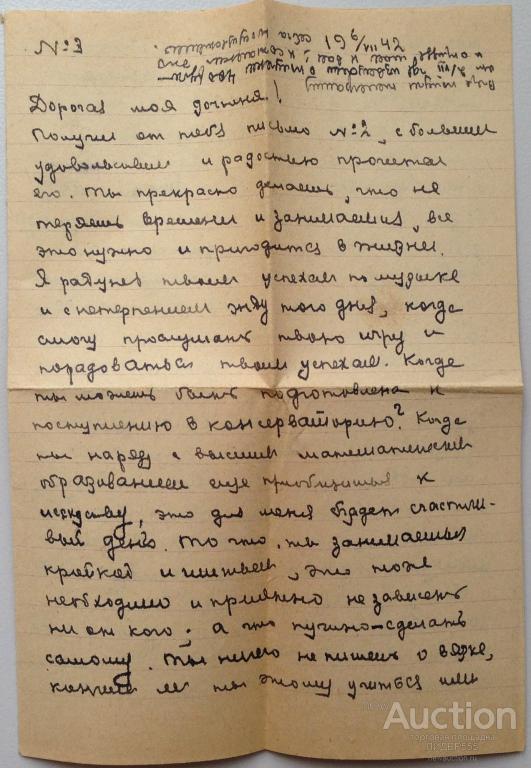 №3
19 6/VII 42
Дорогая моя доченя!
Получил от тебя письмо №2, с большим
удовольствием и радостью прочитал
его. Ты прекрасно делаешь, что не
теряешь времени и занимаешься, все
это нужно и пригодится в жизни.
Я радуюсь твоим успехам по музыке
и с нетерпением жду того дня, когда
смогу прослушать твою игру и
порадоваться твоим успехам. Когда
ты можешь быть подготовлена к
поступлению в консерваторию? Когда
ты наряду с высшим математическим
образованием еще приобщишься к
искусству, это для меня будет счастли-
вый день. То что, ты занимаешься
кройкой и шитьем, это тоже
необходимо и приятно не зависеть
ни от кого, а что нужно-сделать
самому. Ты ничего не пишешь о вязке,
кончила ли ты этому учиться или
Auction
торговая площадка
ЛИДЕР555
newauction.ru